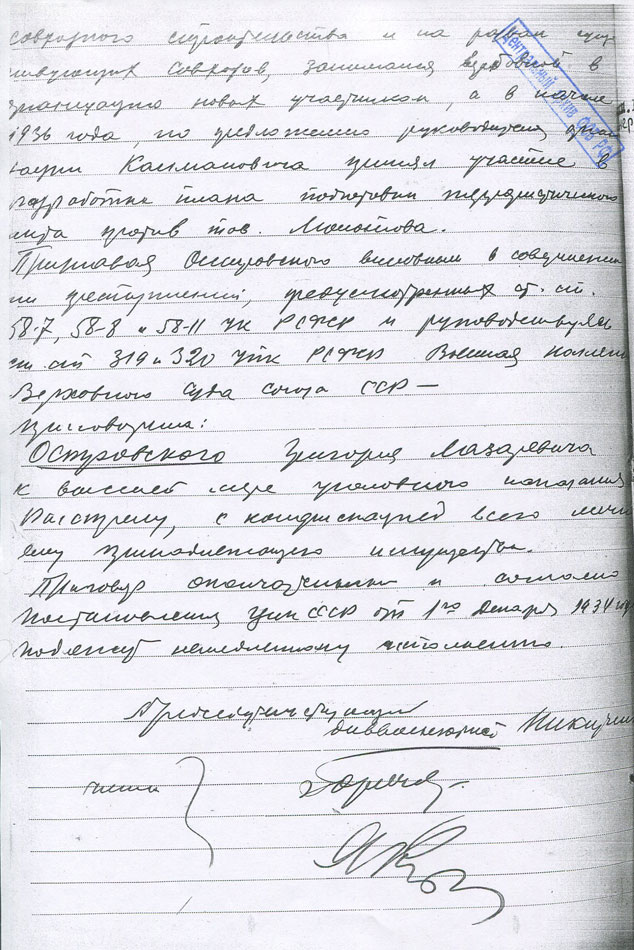 совхозного строительства и на развал суще
ствующих совхозов, занимался вербовкой в
организацию новых участников, а в начале
1936 года, по предложению руководителя орган
изации Калмановича принял участие в
разработке плана подготовки террористического
акта против тов. Молотова.
Признавая Островского виновным в совершении
им преступлений, предусмотренных ст. ст.
58-7, 58-8 и 58-11 УК РСФСР и руководствуясь
ст. ст 319 и 320 УПК РСФСР Военная коллегия
Верховного Суда Союза ССР —
приговорила:
Островского Григория Лазаревича
к высшей мере уголовного наказания
расстрелу, с конфискацией всего лично
ему принадлежащего имущества.
Приговор окончательный и согласно
постановления ЦИК СССР от 1го декабря 1934 г
подлежит немедленному исполнению.
Председательствующий
диввоенюрист Никитчен
члены
Центральный архив ФСБ РФ